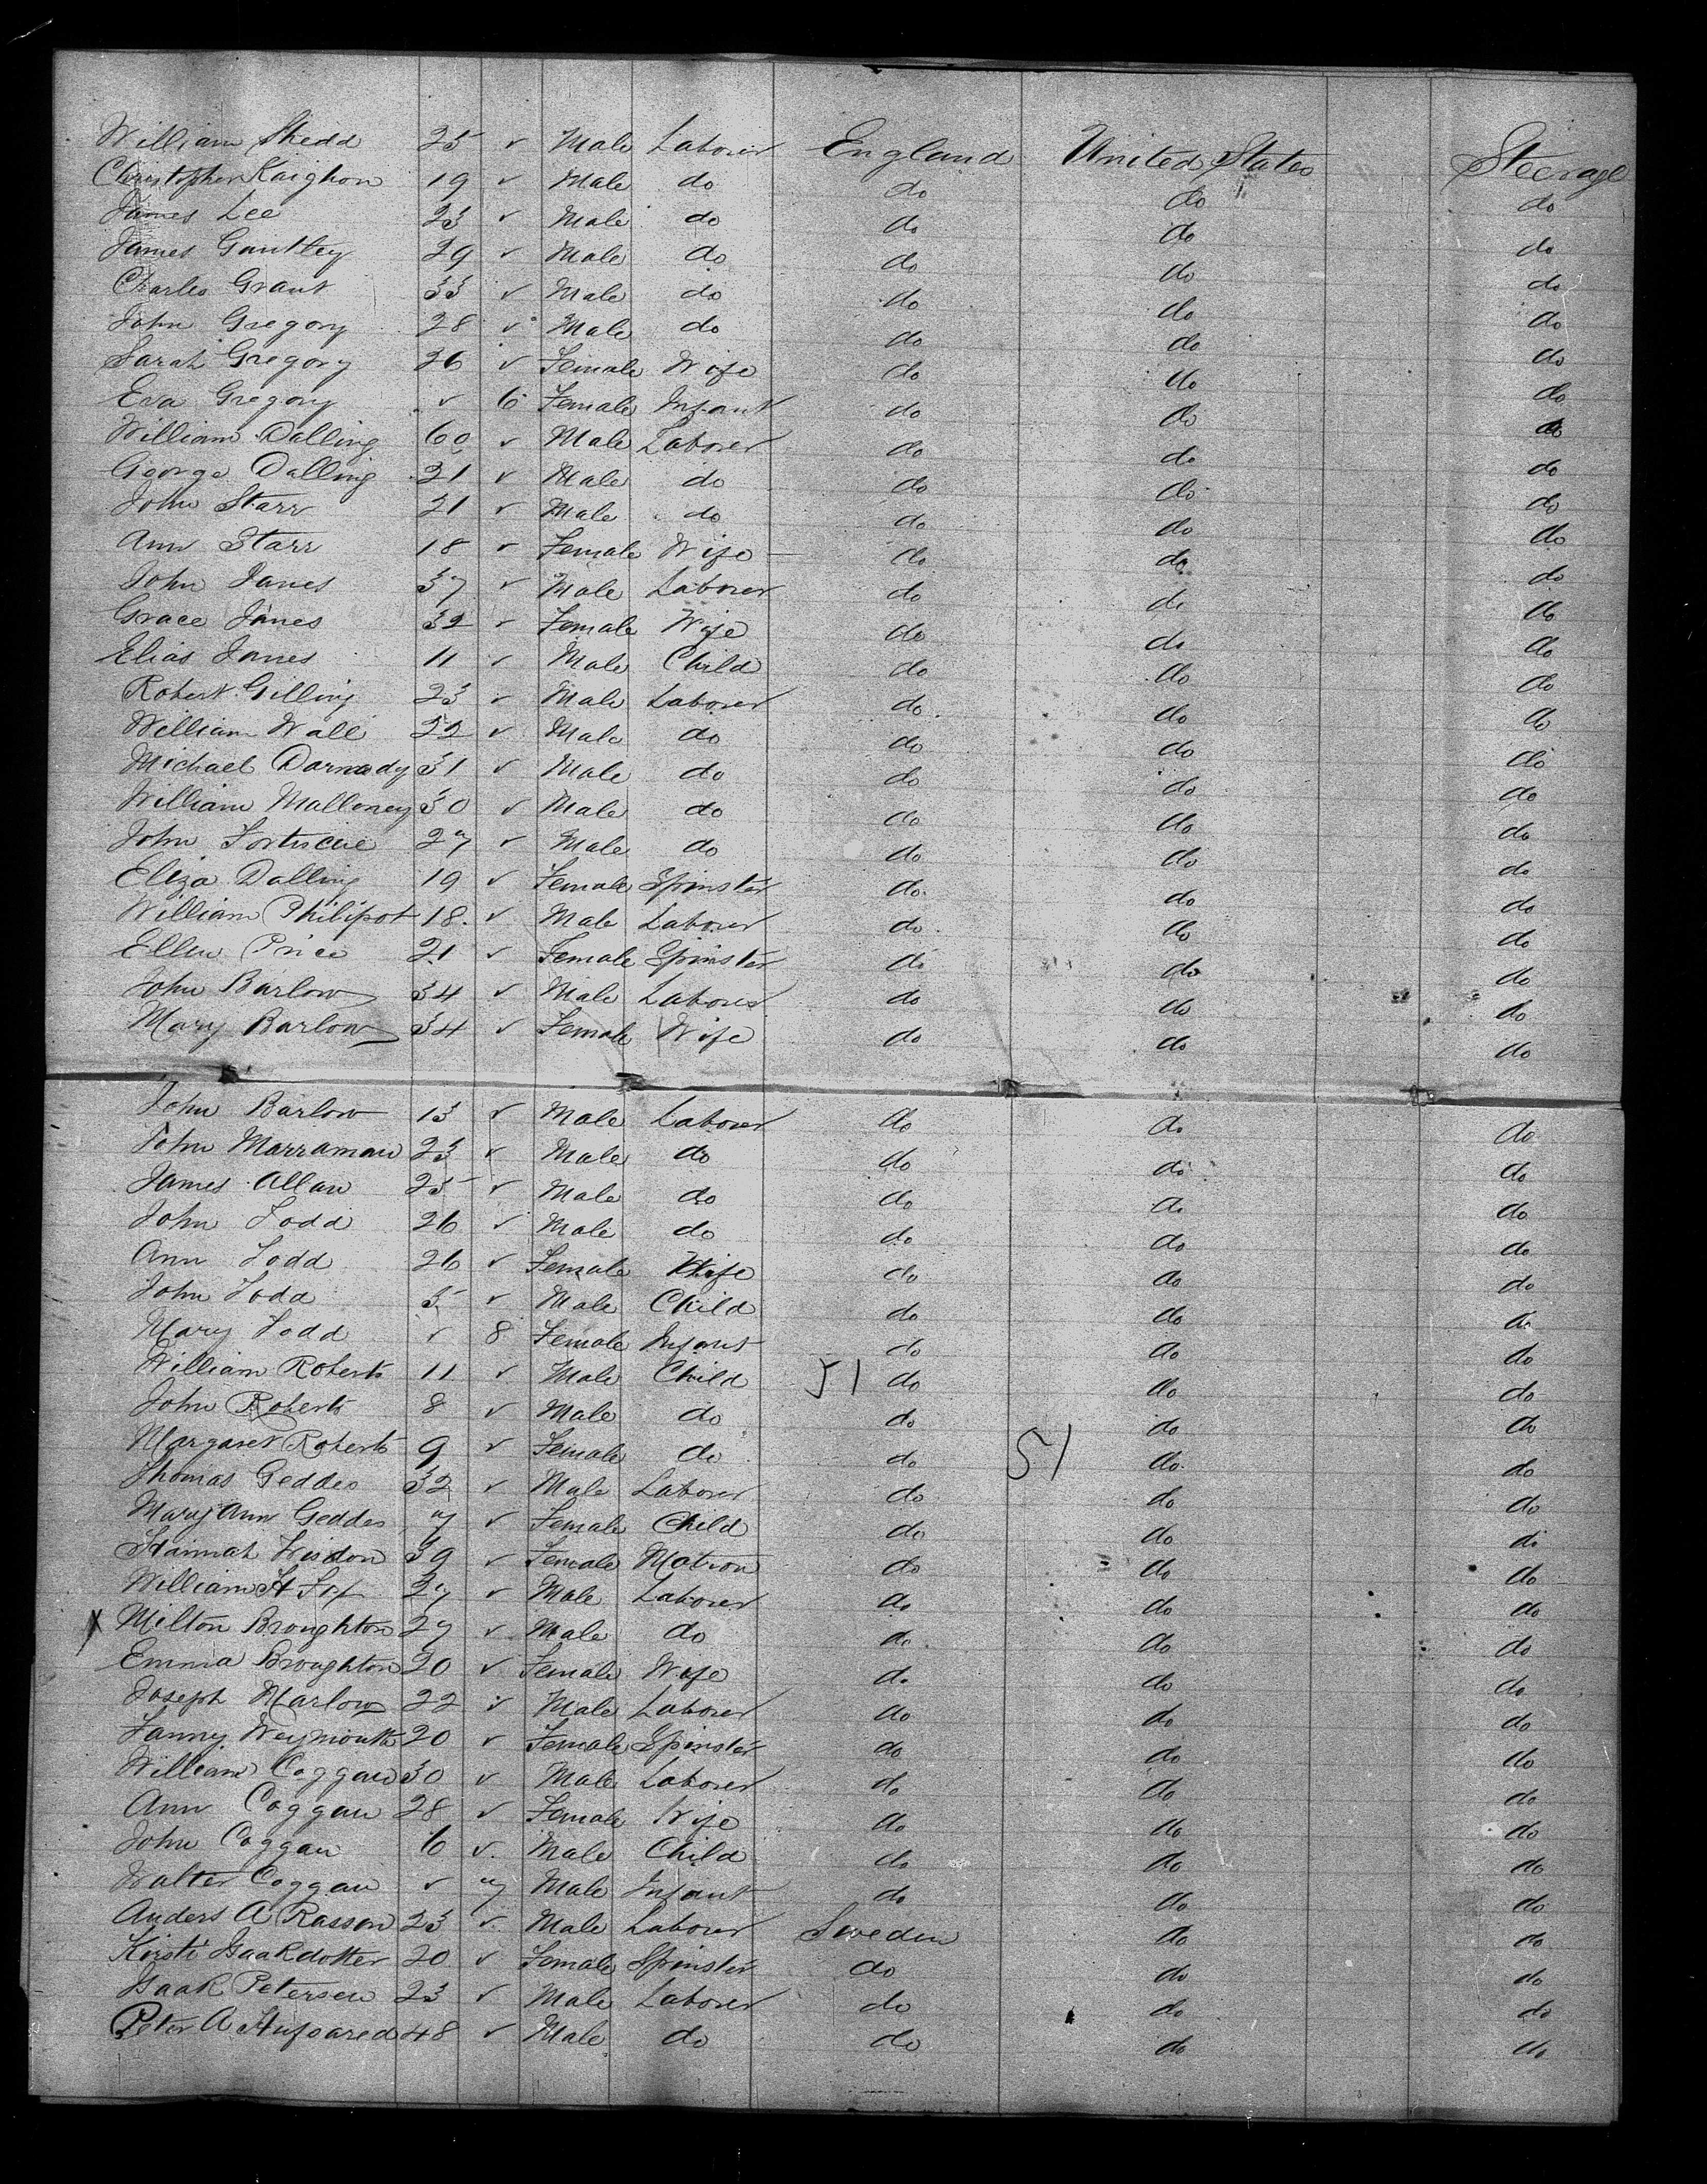 William Shedd 25 ✓ Male Laborer England United States Steerage
Christopher Kaighon 19 ✓ Male do do do do
James Lee 23 ✓ Male do do do do
James Gantley 29 ✓ Male do do do do
Charles Grant 33 ✓ Male do do do do
John Gregory 28 ✓ Male do do do do
Sarah Gregory 26 ✓ Female Wife do do do
Eva Gregory ✓ 6 Female Infant do do do
William Dalling 60 ✓ Male Laborer do do do
George Dalling 21 ✓ Male do do do do
John Starr 21 ✓ Male do do do do
Ann Starr 18 ✓ Female Wife do do do
John Janes 37 ✓ Male Laborer do do do
Grace Janes 32 ✓ Female Wife do do do
Elias Janes 11 ✓ Male Child do do do
Robert Gilling 23 ✓ Male Laborer do do do
William Wall 22 ✓ Male do do do do
Michael Darmody 31 ✓ Male do do do do
William Malloney 30 ✓ Male do do do do
John Fortiscue 27 ✓ Male do do do do
Eliza Dalling 19 ✓ Female Spinster do do do
William Philipot 18 ✓ Male Laborer do do do
Ellen Price 21 ✓ Female Spinster do do do
John Barlow 34 ✓ Male Laborer do do do
Mary Barlow 34 ✓ Female Wife do do do
John Barlow 13 ✓ Male Laborer do do do
John Marraman 23 ✓ Male do do do do
James Allan 25 ✓ Male do do do do
John Todd 26 ✓ Male do do do do
Ann Todd 26 ✓ Female Wife do do do
John Todd 5 ✓ Male Child do do do
Mary Todd ✓ 8 Female Infant do do do
William Roberts 11 ✓ Male Child 51 do do do
John Roberts 8 ✓ Male do do do do
Margaret Roberts 9 ✓ Female do do 51 do do
Thomas Geddes 32 ✓ Male Laborer do do do
Mary Ann Geddes 7 ✓ Female Child do do do
Hannah Wesdon 39 ✓ Female Matron do do do
William H 27 ✓ Male Laborer do do do
X Milton Broughton 27 ✓ Male do do do do
Emma Broughton 20 ✓ Female Wife do do do
Joseph Marlow 22 ✓ Male Laborer do do do
Fanny Weymouth 20 ✓ Female Spinster do do do
William Coggan 30 ✓ Male Laborer do do do
Ann Coggan 28 ✓ Female Wife do do do
John Coggan 6 ✓ Male Child do do do
Walter Coggan ✓ 7 Male Infant do do do
Anders A Rasson 23 ✓ Male Laborer Sweden do do
Kirsti Isaakdotter 20 ✓ Female Spinster do do do
Isaak Petersen 23 ✓ Male Laborer do do do
Peter A 48 ✓ Male do do do do